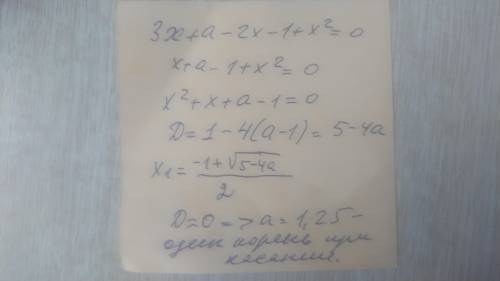 3x+a-2x-1+x²=0
x+a-1+x²=0
x²+x+a-1=0
D=1-4(a-1)=5-4a
x₁=(-1+√(5-4a))/2
D=0=>a=1,25-
один корень при
касании.